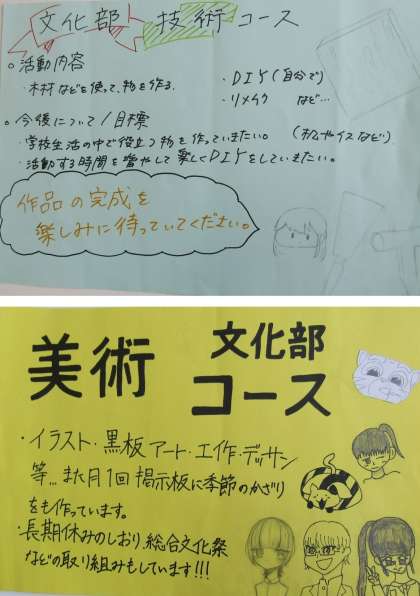 文化部 技術コース
○活動内容
・木材などを使って、物を作る。
・DIY(自分で)
・リメイク など…
○今後について/目標
・学校生活の中で役立つ物を作っていきたい。(机やイスなど)
・活動する時間を増やして楽しくDIYをしていきたい。
作品の完成を
楽しみに待っていてください。
美術 文化部
コース
・イラスト・黒板アート・工作・デッサン
等…また月1回掲示板に季節のかざり
をも作っています。
・長期休みのしおり、総合文化祭
などの取り組みもしています!!!